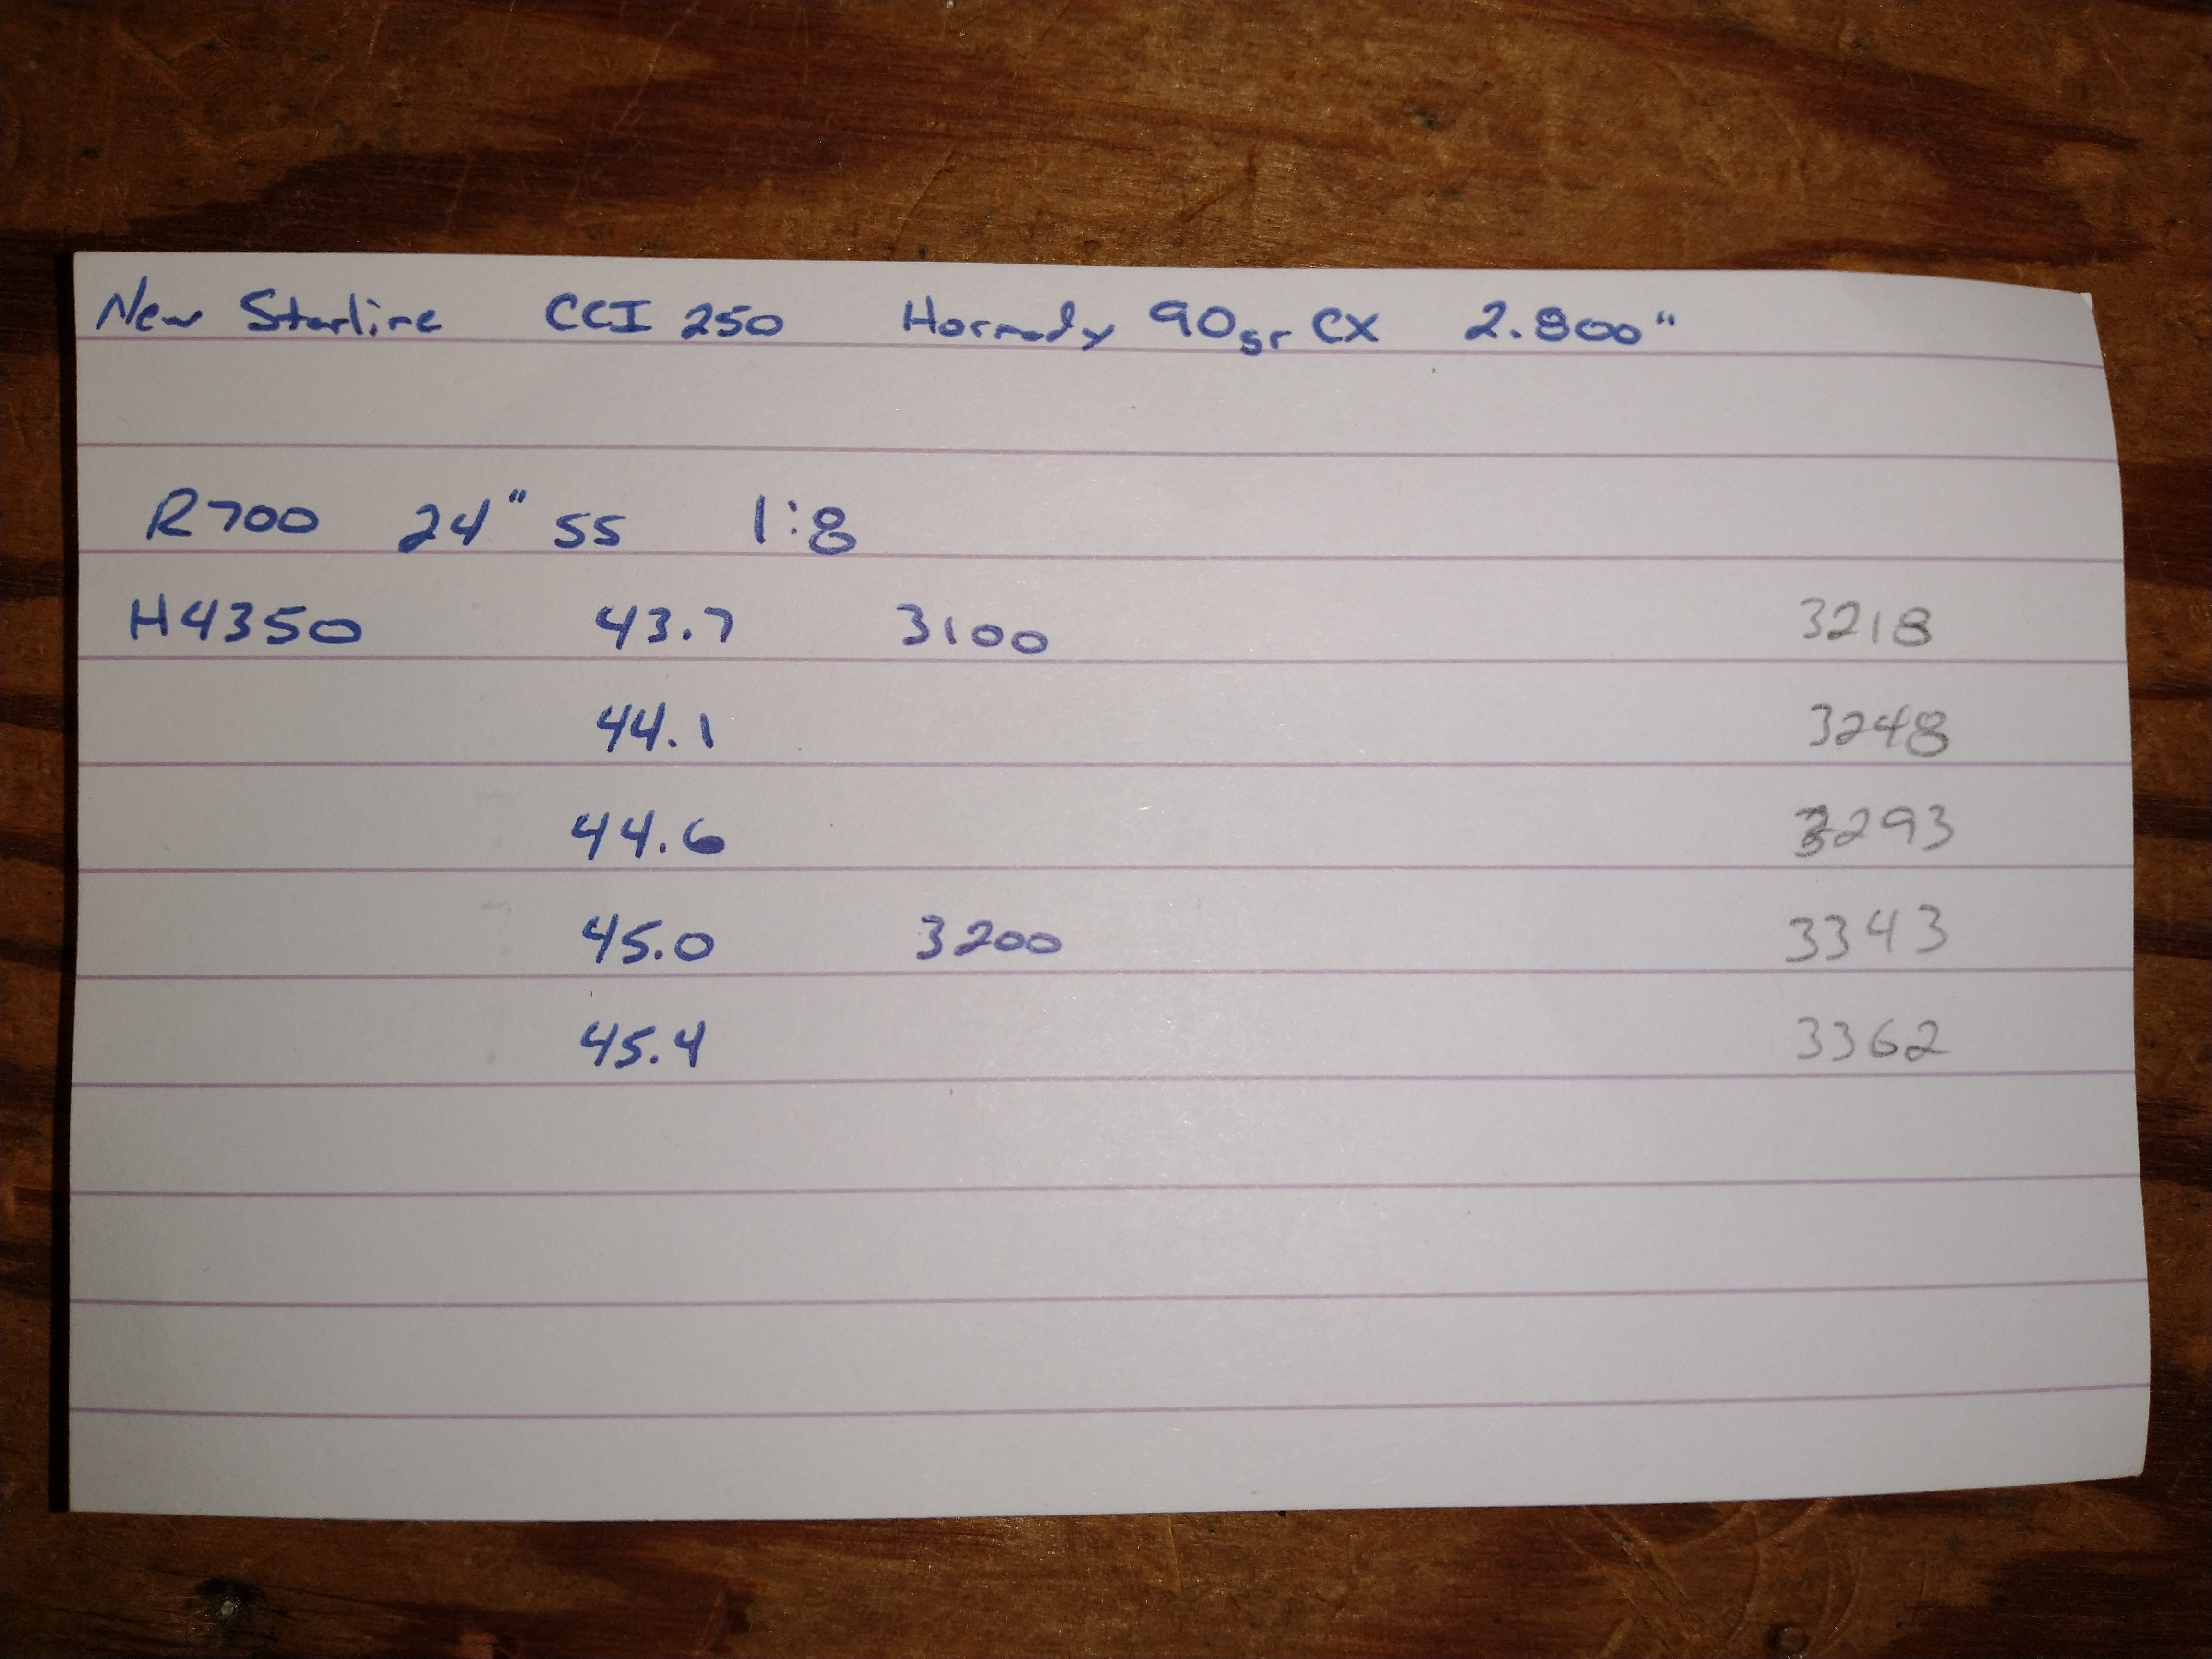 New Starline CCI 250 Hornady 90gr CX 2.800"
R700 24" SS 1:8
H4350 43.7 3100 3218
44.1 3248
44.6 3293
45.0 3200 3343
45.4 3362